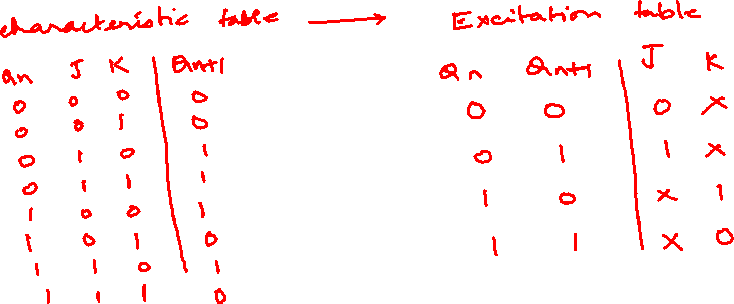 characteristic table → Excitation table
Qn J K Qn+1
0 0 0 0
0 0 1 0
0 1 0 1
0 1 1 1
1 0 0 1
1 0 1 0
1 1 0 1
1 1 1 0
Qn Qn+1 J K
0 0 0 X
0 1 1 X
1 0 X 1
1 1 X 0